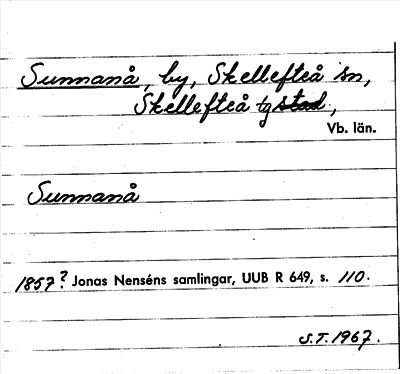 Sunnanå, by, Skellefteå sn,
Skellefteå tg stad,
Vb. län.
Sunnanå
1857? Jonas Nenséns samlingar, UUB R 649, s. 110.
S.T. 1967.